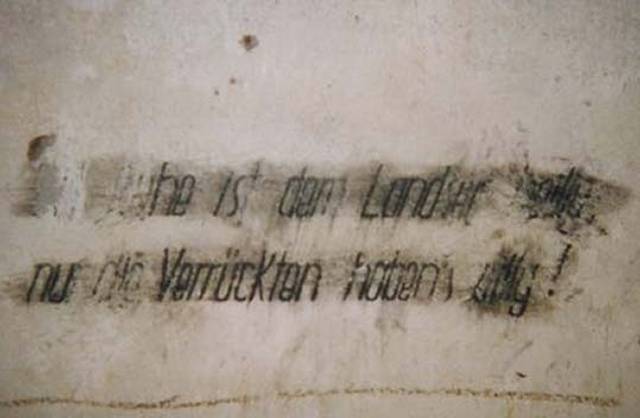 Ruhe ist dem Landser heilig
nur die Verrückten haben's eilig!